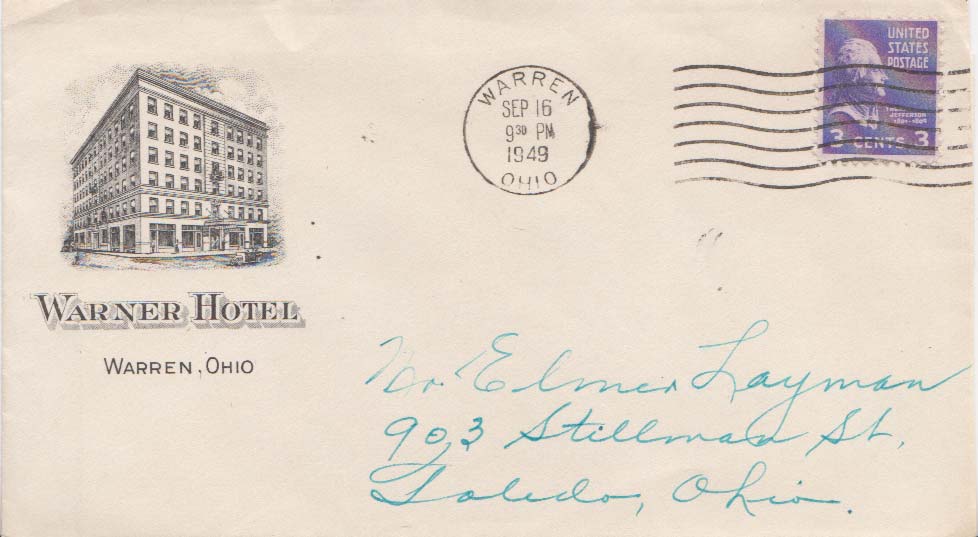 WARREN
SEP 16
9 30 PM
1949
OHIO
UNITED
STATES
POSTAGE
JEFFERSON
1801-1809
3 CENTS 3
WARNER HOTEL
WARREN, OHIO
Mr. Elmer Layman
903 Stillman St.
Toledo, Ohio.